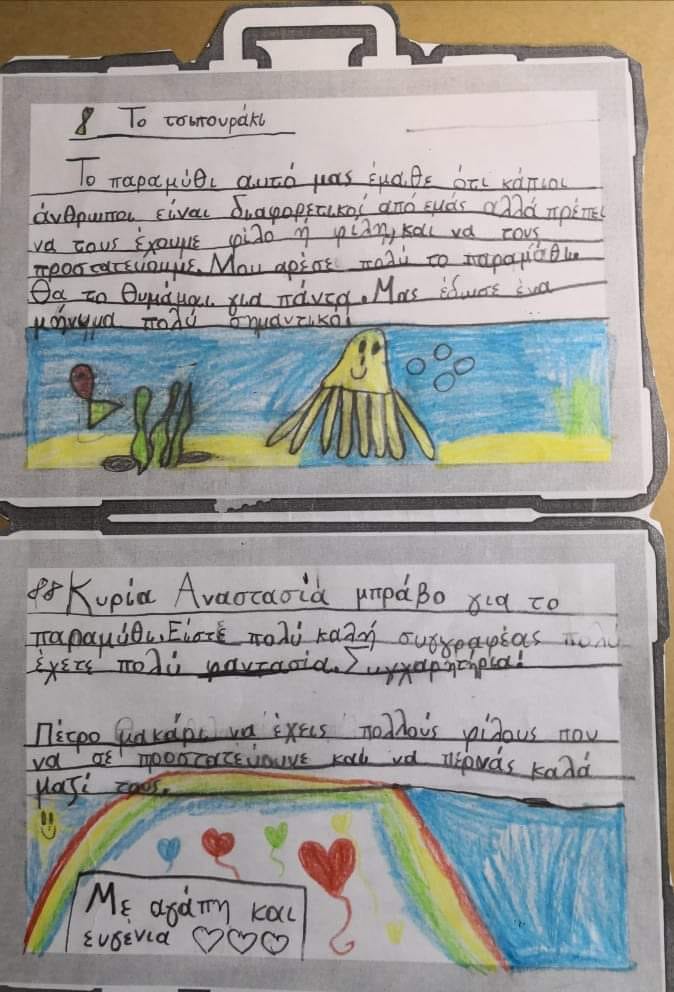 8 Το τσιπουράκι
Το παραμύθι αυτό μας έμαθε ότι κάπιοι
άνθρωποι είναι διαφορετικοί από εμάς αλλά πρέπει
να τους έχουμε φίλο ή φίλη, και να τους
προστατεύουμε. Μου αρέσε πολύ το παραμύθι.
Θα το θυμάμαι για πάντα. Μας έδωσε ένα
μήνυμα πολύ σημαντικό!
88 Κυρία Αναστασία μπράβο για το
παραμύθι. Είστε πολύ καλή συγγραφέας πολύ
έχετε πολύ φαντασία. Συγχαρητήρια!
Πέτρο μακάρι να έχεις πολλούς φίλους που
να σε προστατεύουνε και να πέρνάς καλά
μαζί τους.
Με αγάπη και
ευγένια